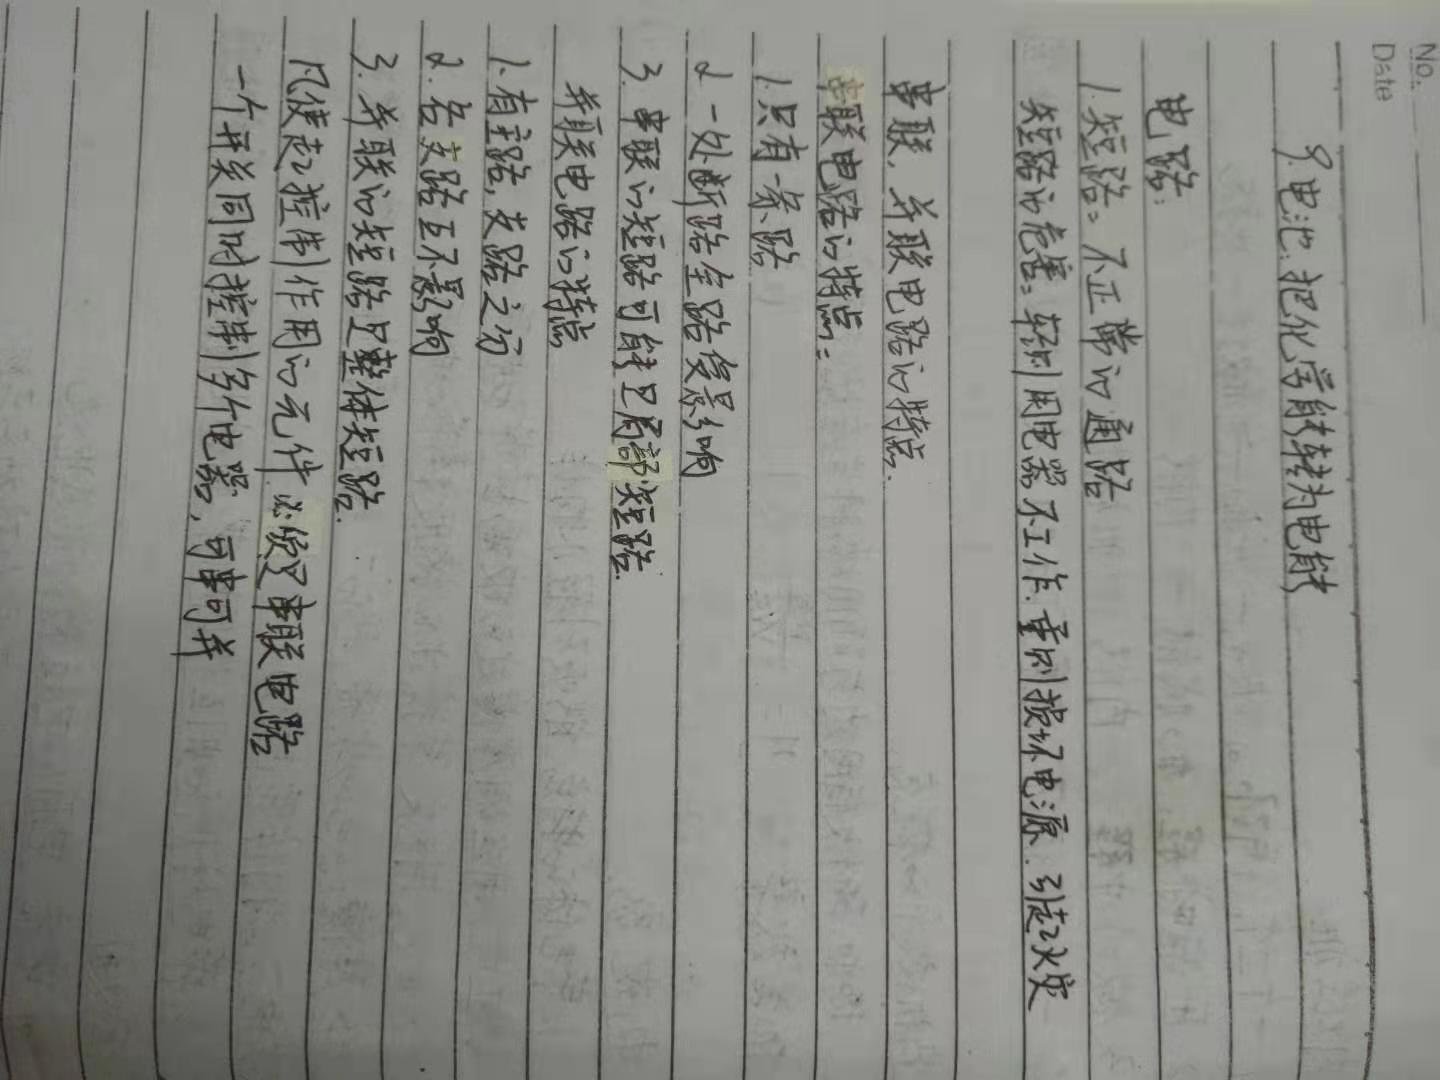 No.
Date
9. 电池: 把化学能转为电能
电路:
1. 短路: 不正常的通路
短路的危害: 轻则用电器不工作. 重则损坏电源. 引起火灾
串联, 并联电路的特点.
串联电路的特点:
1. 只有一条路
2. 一处断路全路受影响
3. 串联的短路可能是局部短路.
并联电路的特点
1. 有主路, 支路之分
2. 各支路互不影响
3. 并联的短路是整体短路.
凡使起控制作用的元件 必须是串联电路
一个开关同时控制多个电器, 可串可并